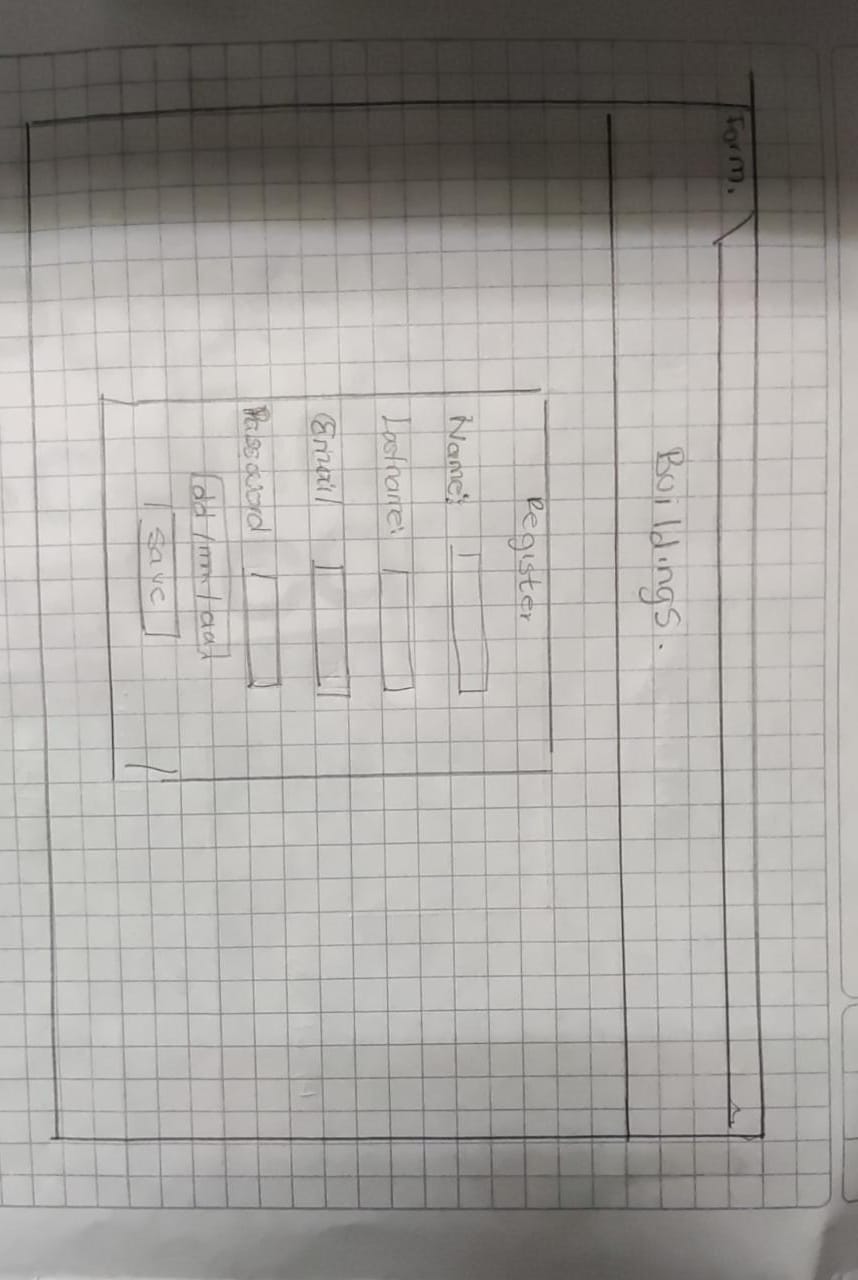 Form.
Buildings.
Register
Name:
lastname:
Email
Password
dd/mm/aa
save